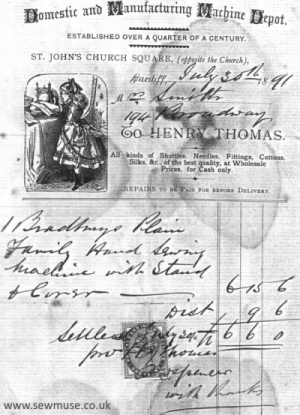 Domestic and Manufacturing Machine Depot.
ESTABLISHED OVER A QUARTER OF A CENTURY.
ST. JOHN'S CHURCH SQUARE, (opposite the Church),
Cardiff, July 30th 1891
M rs Smith
194 Broadway
To HENRY THOMAS.
All kinds of Shuttles, Needles, Fittings, Cottons,
Silks, &c., of the best quality, at Wholesale
Prices, for Cash only.
REPAIRS TO BE PAID FOR BEFORE DELIVERY.
1 Bradburys Plain
Family Hand Sewing
Machine with Stand
& Cover 6 15 6
Dist 9 6
Settled July 30th 6 6 0
pro H Thomas
Spencer
with thanks
www.sewmuse.co.uk